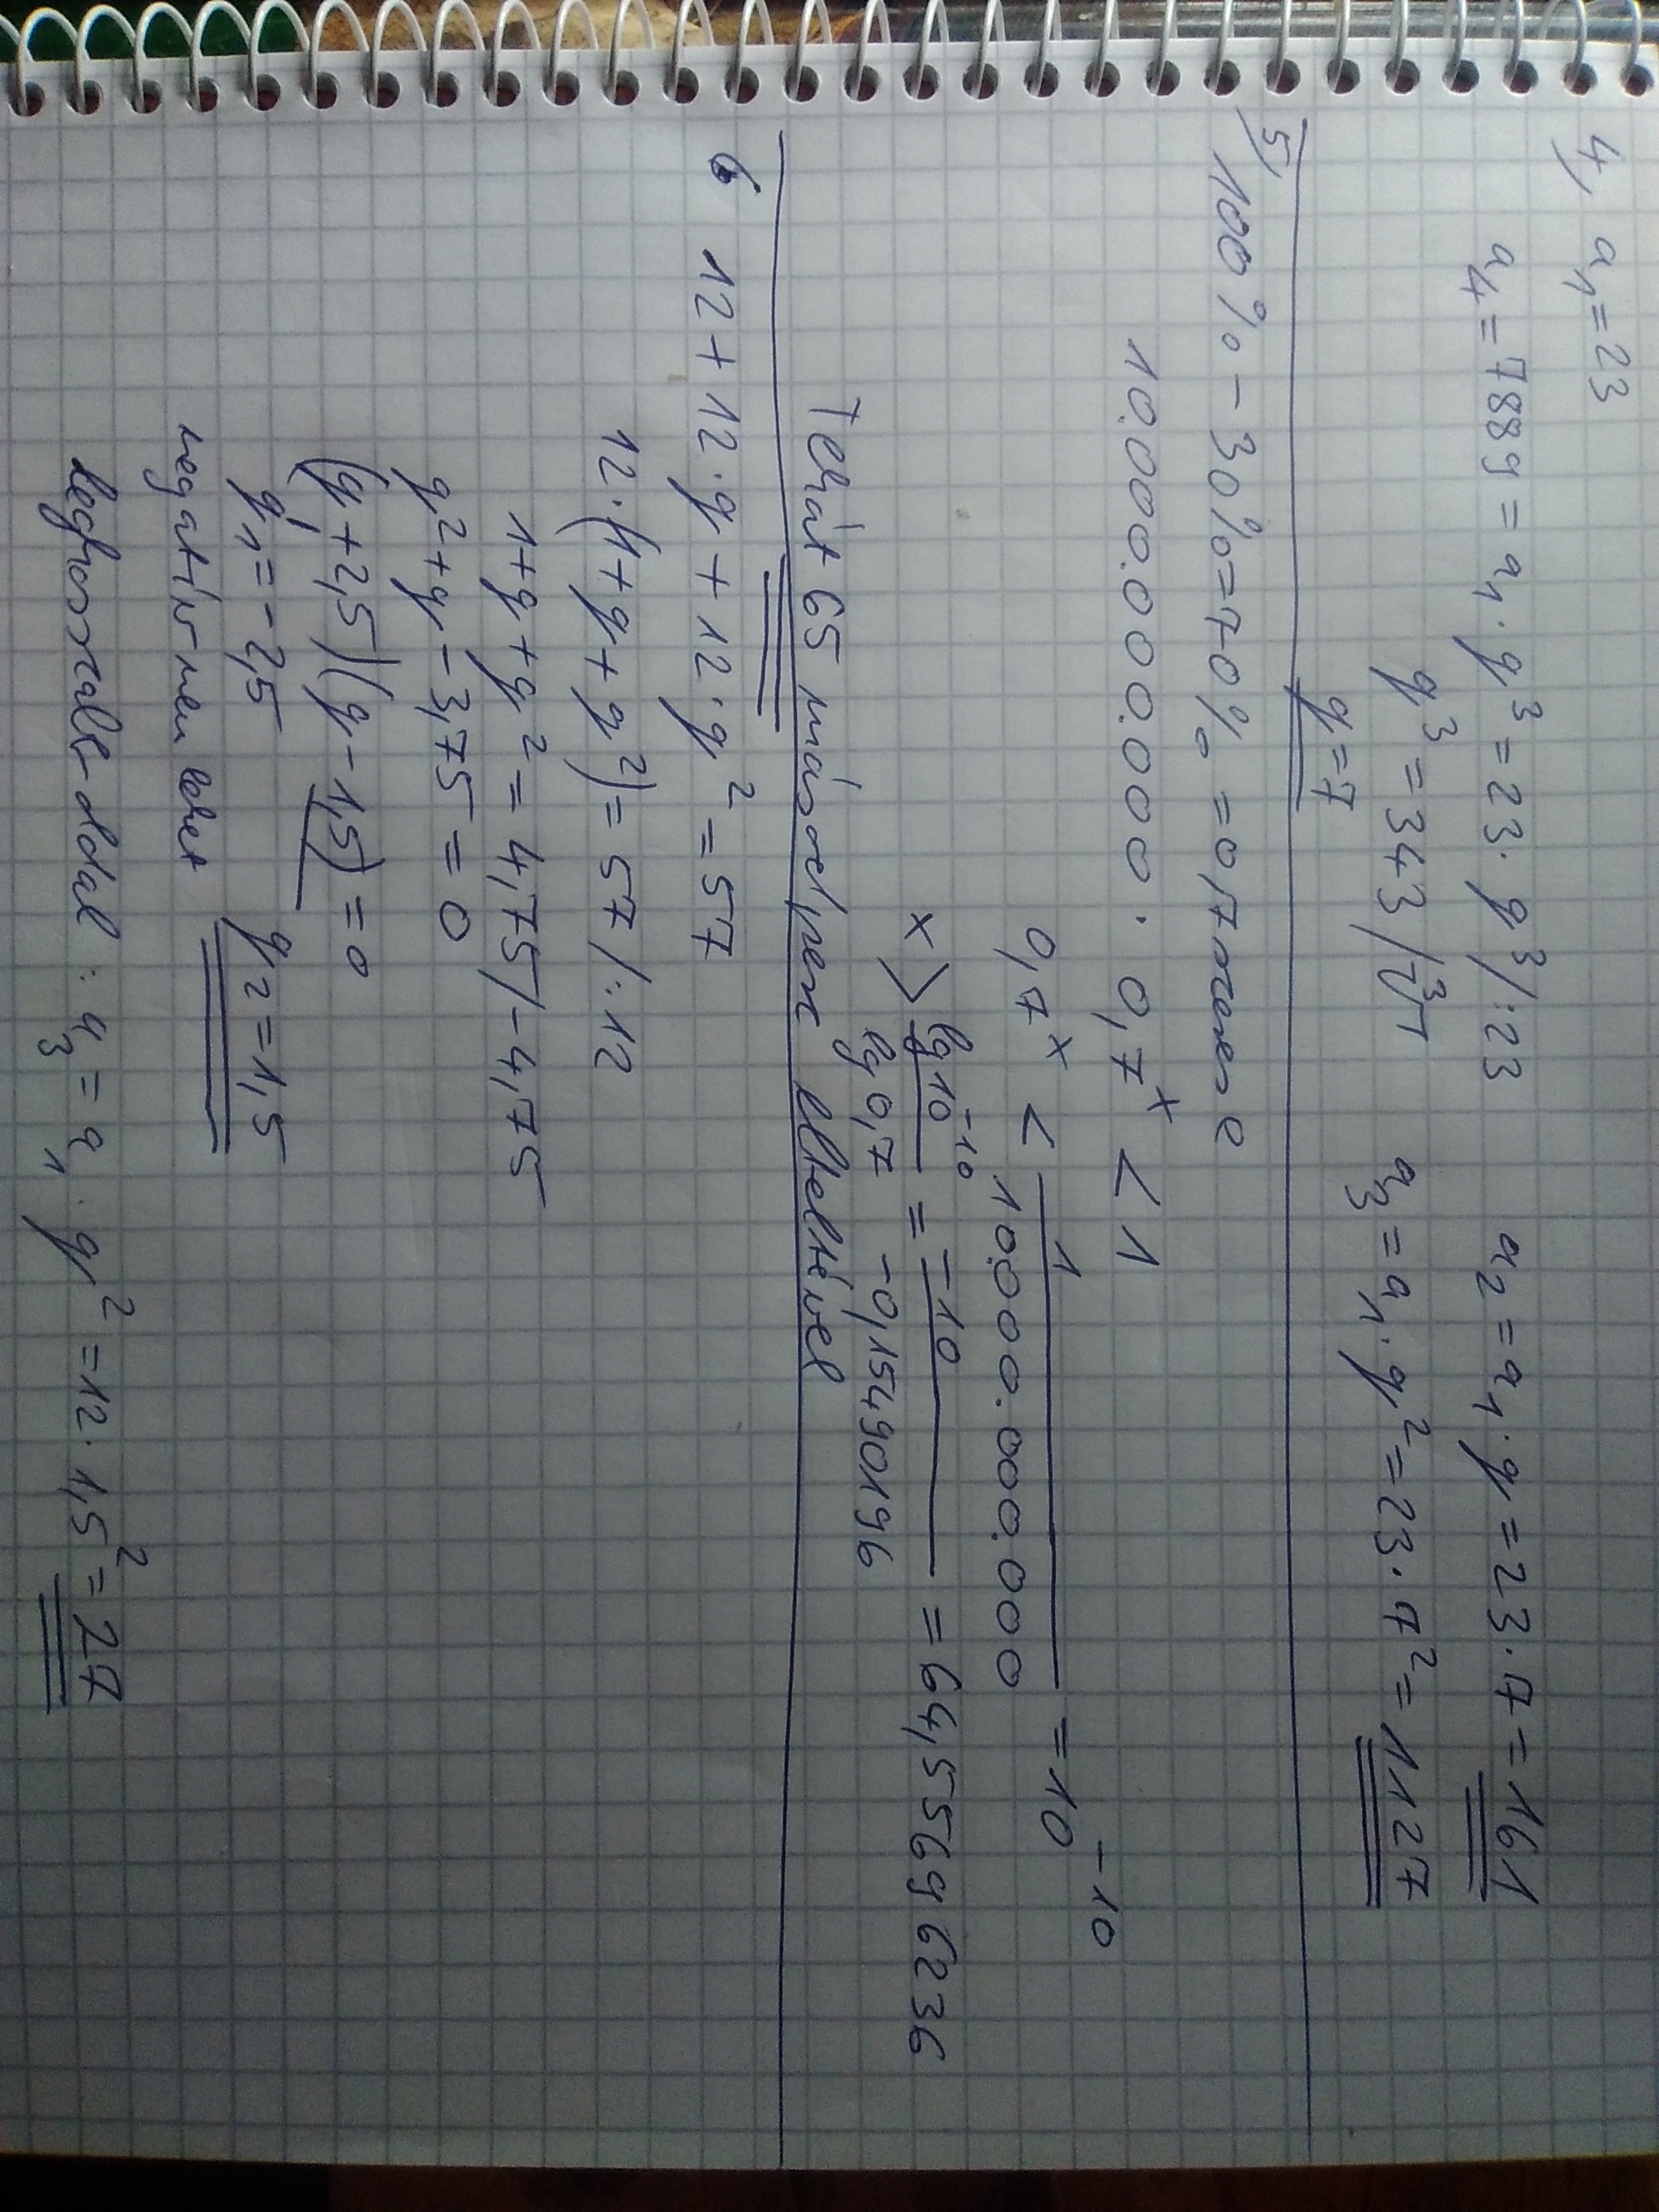 4, a₁ = 23
a₄ = 7889 = a₁ · q³ = 23 · q³ /:23
a₂ = a₁ · q = 23 · 7 = 161
q³ = 343 /∛
a₃ = a₁ · q² = 23 · 7² = 1127
q = 7
5, 100% - 30% = 70% = 0,7szerese
10.000.000.000 · 0,7ˣ < 1
0,7ˣ < 1/10.000.000.000 = 10⁻¹⁰
x > lg 10⁻¹⁰ / lg 0,7 = -10 / -0,15490196 = 64,55696236
Tehát 65 másodperc elteltével
6 12 + 12 · q + 12 · q² = 57
12 · (1 + q + q²) = 57 /:12
1 + q + q² = 4,75 /-4,75
q² + q - 3,75 = 0
(q + 2,5)(q - 1,5) = 0
q₁ = -2,5 q₂ = 1,5
negatív nem lehet
leghosszabb oldal: a₃ = a₁ · q² = 12 · 1,5² = 27